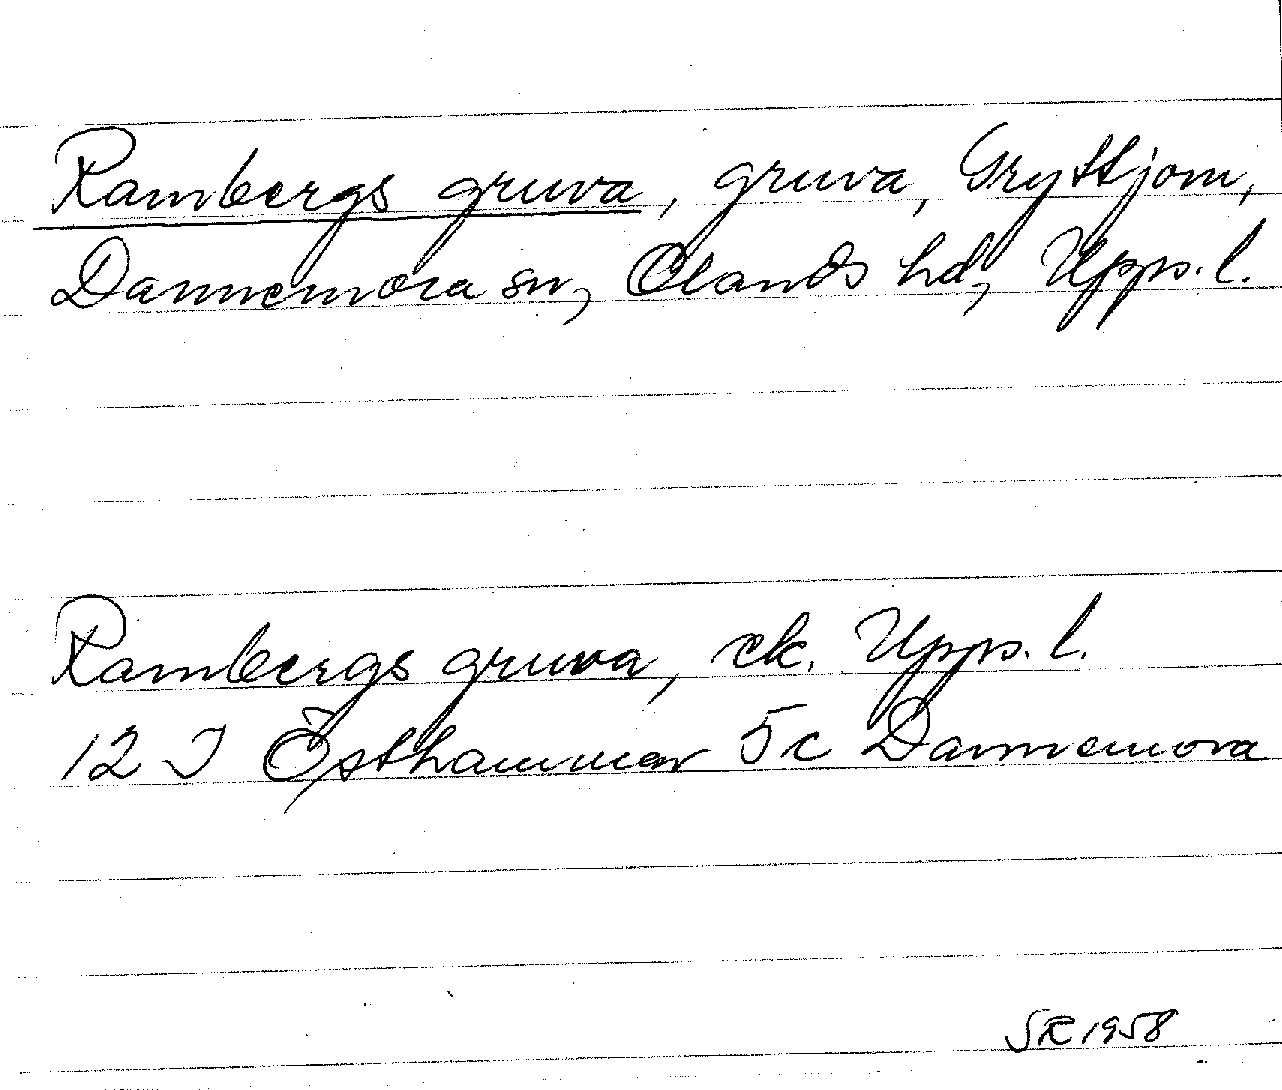 Rambergs gruva, gruva, Gryttjom,
Dannemora sn, Olands hd, Upps. l.
Rambergs gruva, ek. Upps. l.
12 I Östhammar 5c Dannemora
SR 1958